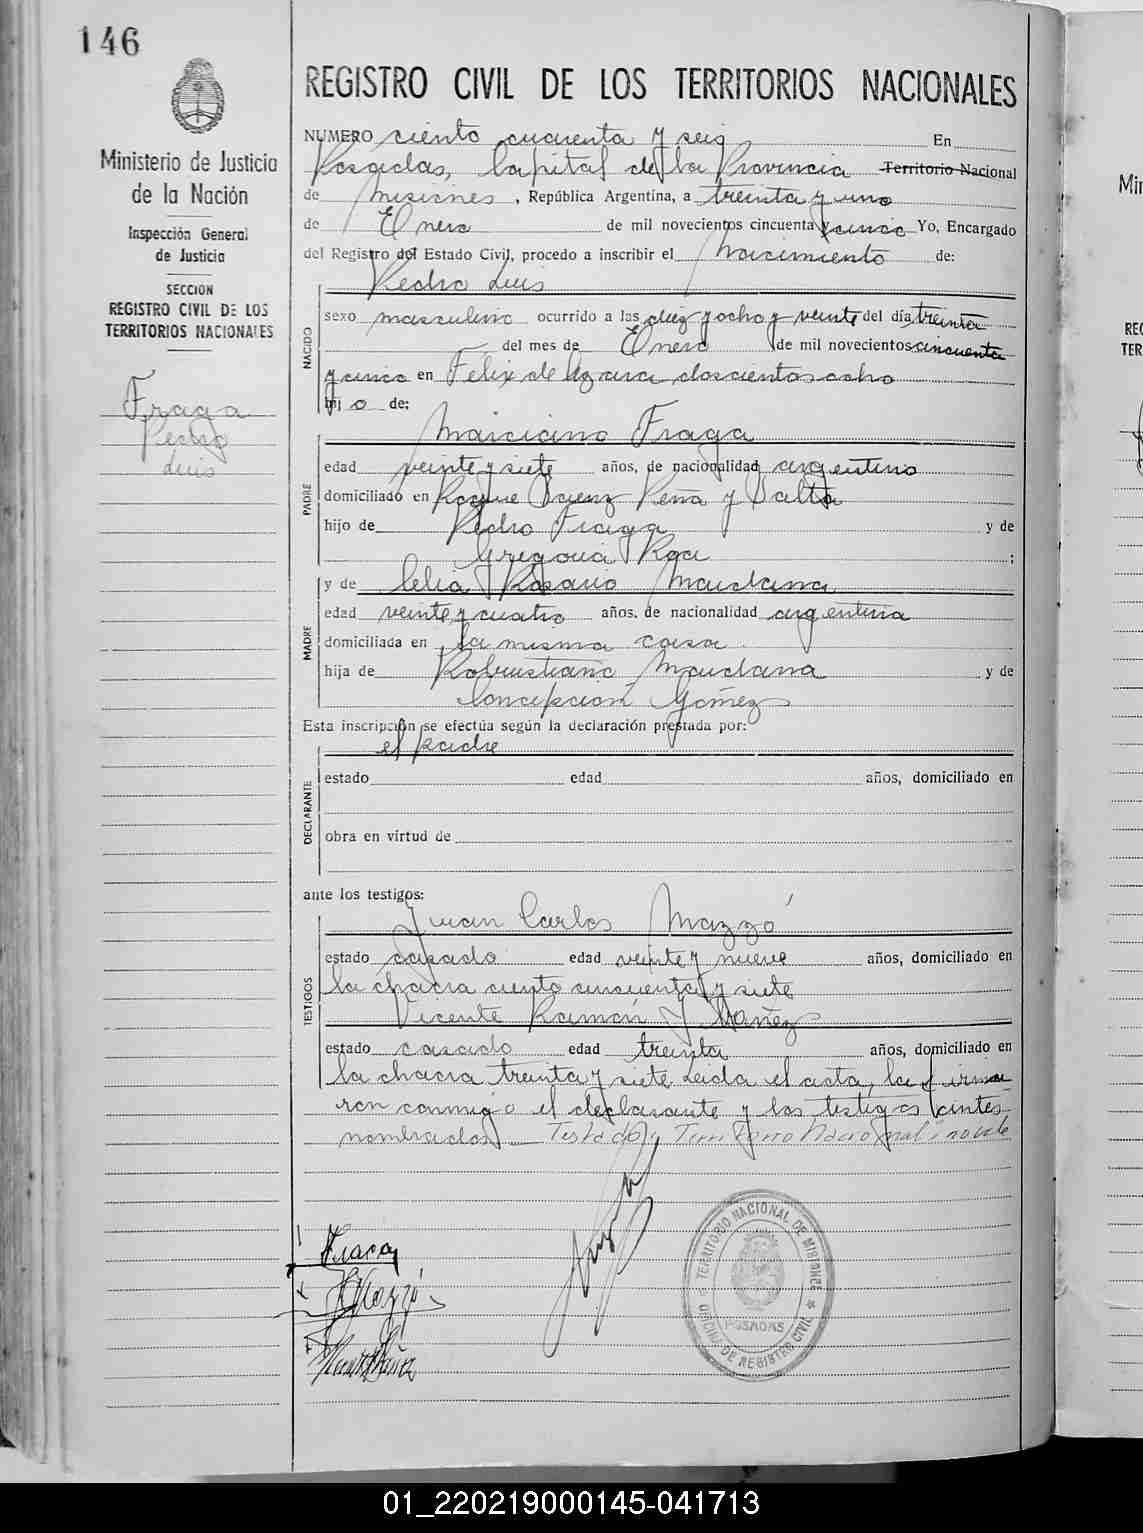 146
Ministerio de Justicia
de la Nación
Inspección General
de Justicia
SECCION
REGISTRO CIVIL DE LOS
TERRITORIOS NACIONALES
Fraga
Pedro
Luis
REGISTRO CIVIL DE LOS TERRITORIOS NACIONALES
NUMERO ciento cuarenta y seis En
Posadas, Capital de la Provincia Territorio Nacional
de Misiones, República Argentina, a treinta y uno
de Enero de mil novecientos cincuenta y cinco Yo, Encargado
del Registro del Estado Civil, procedo a inscribir el Nacimiento de:
Pedro Luis
NACIDO
sexo masculino ocurrido a las diez y ocho y veinte del día treinta
del mes de Enero de mil novecientos cincuenta
y cinco en Félix de Azara doscientos ocho
hijo de:
PADRE
Marciano Fraga
edad veinte y siete años, de nacionalidad argentino
domiciliado en Roque Saenz Peña y Salta
hijo de Pedro Fraga y de
Gregoria Roa ;
MADRE
y de Celia Rosario Maidana
edad veinte y cuatro años, de nacionalidad argentina
domiciliada en la misma casa
hija de Robustiano Maidana y de
Concepción Gómez
Esta inscripción se efectúa según la declaración prestada por:
el padre
DECLARANTE
estado edad años, domiciliado en
obra en virtud de
ante los testigos:
TESTIGOS
Juan Carlos Mazzó
estado casado edad veinte y nueve años, domiciliado en
la chacra ciento cincuenta y siete
Vicente Ramón Ybañez
estado casado edad treinta años, domiciliado en
la chacra treinta y siete Leida el acta, la firma
ron conmigo el declarante y los testigos antes
nombrados. Testado: Territorio Nacional: no vale
Fraga
Mazzó
TERRITORIO NACIONAL DE MISIONES
POSADAS
OFICINA DE REGISTRO CIVIL
Mi
REG
TER
01_220219000145-041713